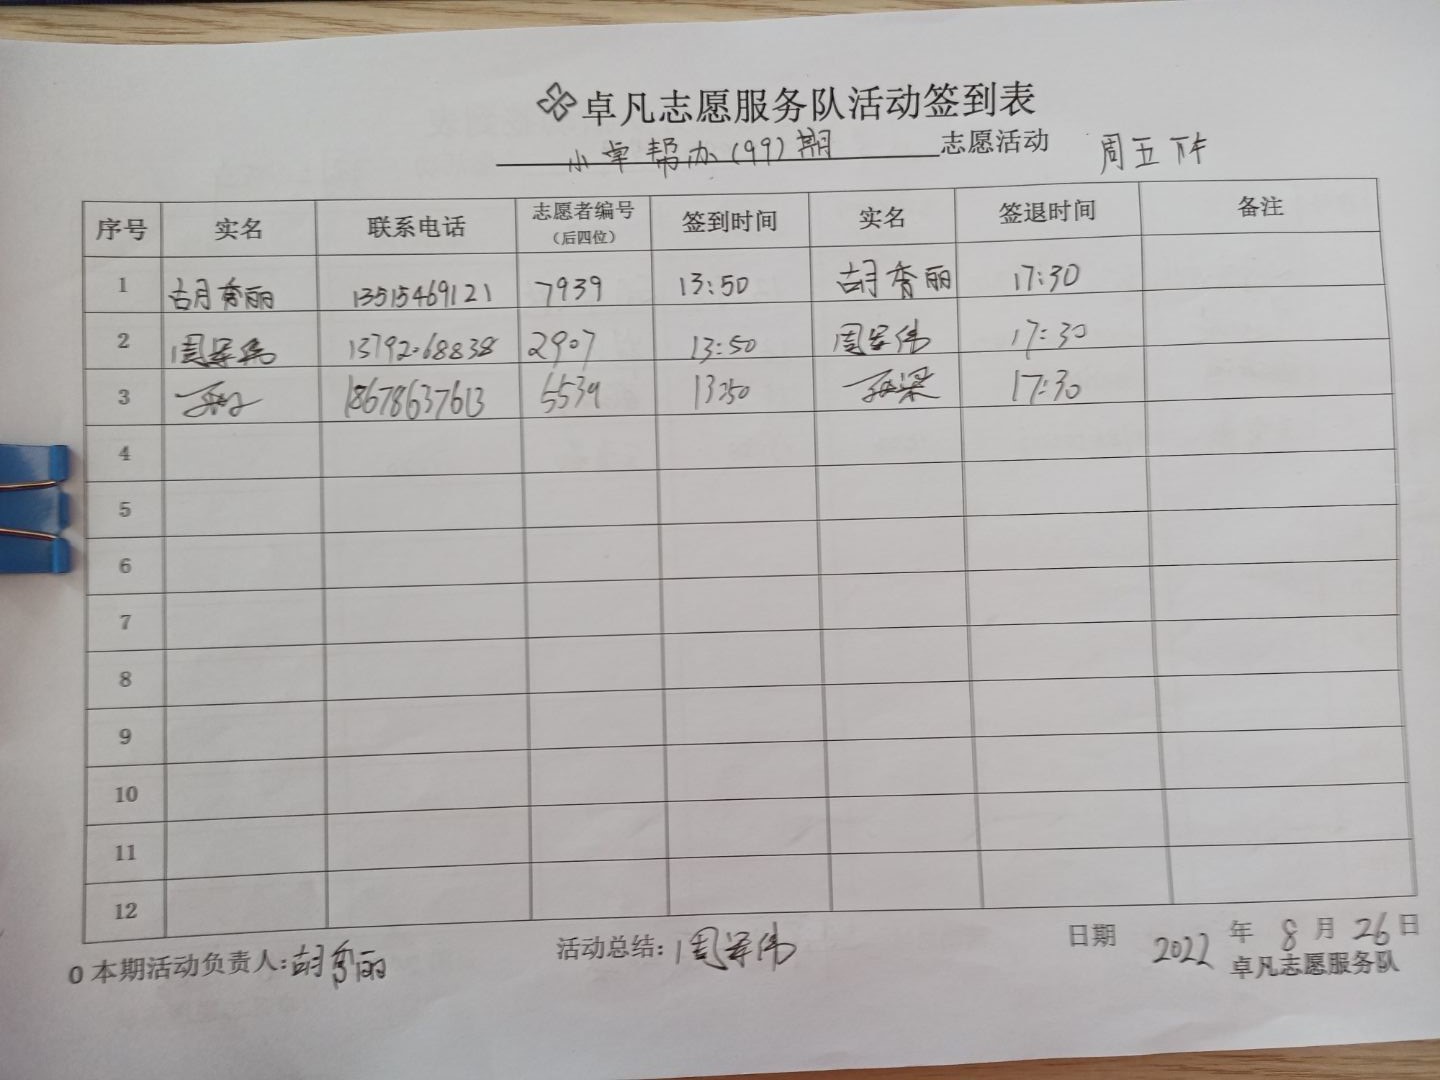 卓凡志愿服务队活动签到表
小卓帮办(99)期 志愿活动 周五下午
序号 实名 联系电话 志愿者编号（后四位） 签到时间 实名 签退时间 备注
1 胡秀丽 13515469121 7939 13:50 胡秀丽 17:30
2 周军伟 13792068838 2907 13:50 周军伟 17:30
3 18678637613 5539 13:50 17:30
4
5
6
7
8
9
10
11
12
0 本期活动负责人:胡秀丽 活动总结:周军伟 日期 2022 年 8 月 26 日
卓凡志愿服务队